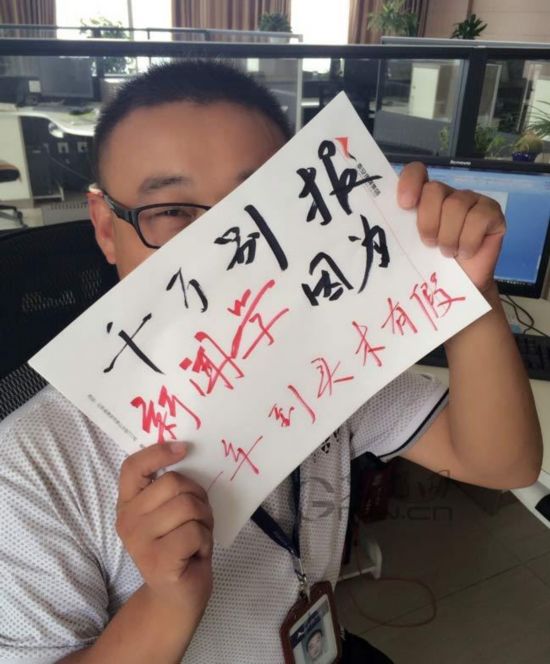 千万别报
新闻学因为
一年到头未有假
lenovo